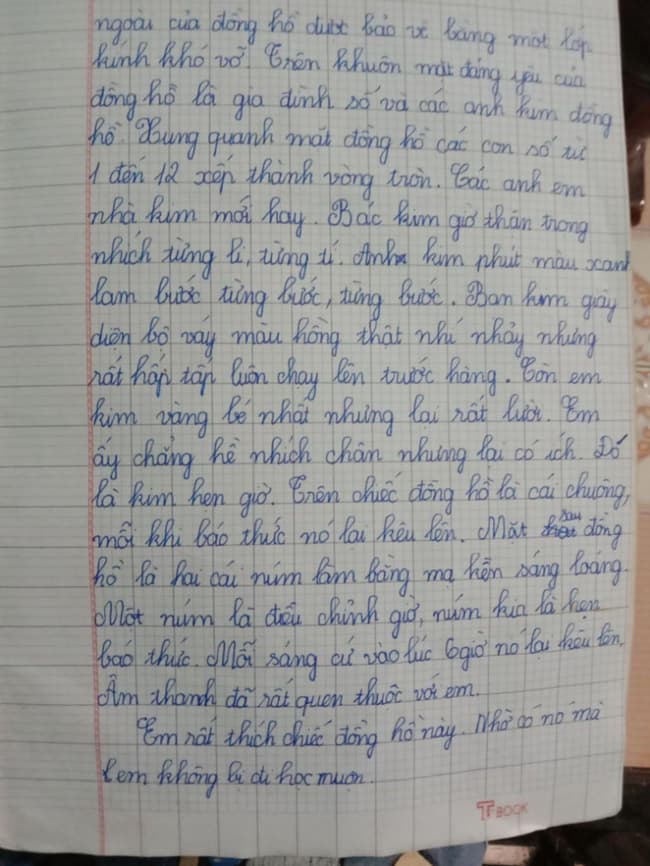 ngoài của đồng hồ được bảo vệ bằng một lớp
kính khó vỡ. Trên khuôn mặt đáng yêu của
đồng hồ là gia đình số và các anh kim đồng
hồ. Xung quanh mát đồng hồ các con số từ
1 đến 12 xếp thành vòng tròn. Các anh em
nhà kim mới hay. Bác kim giờ thận trong
nhích từng li, từng tí. Anh kim phút màu xanh
lam bước từng bước, từng bước. Bạn kim giây
diện bộ váy màu hồng thật nhí nhảy nhưng
rất hấp tấp luôn chạy lên trước hàng. Còn em
kim vàng bé nhất nhưng lại rất lười. Em
ấy chẳng hề nhích chân nhưng lại có ích. Đó
là kim hẹn giờ. Trên chiếc đồng hồ là cái chuông,
mỗi khi báo thức nó lại kêu lên. Mặt sau đồng
hồ là hai cái núm làm bằng mạ kền sáng loáng.
Một núm là điều chỉnh giờ, núm kia là hẹn
báo thức. Mỗi sáng cứ vào lúc 6 giờ nó lại kêu lên.
Âm thanh đã rất quen thuộc với em.
Em rất thích chiếc đồng hồ này. Nhờ có nó mà
em không bị đi học muộn.
TBOOK